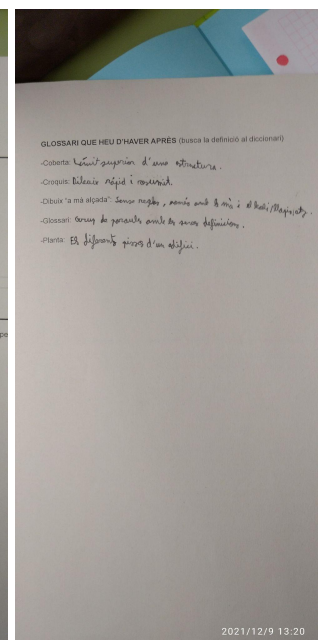 GLOSSARI QUE HEU D'HAVER APRÈS (busca la definició al diccionari)
-Coberta: Límit superior d'una estructura.
-Croquis: Dibuix ràpid i resumit.
-Dibuix "a mà alçada": Sense regles, només amb la mà i el
-Glossari: Grup de paraules amb les seves definicions.
-Planta: Els diferents pisos d'un edifici.
pe
2021/12/9 13:20